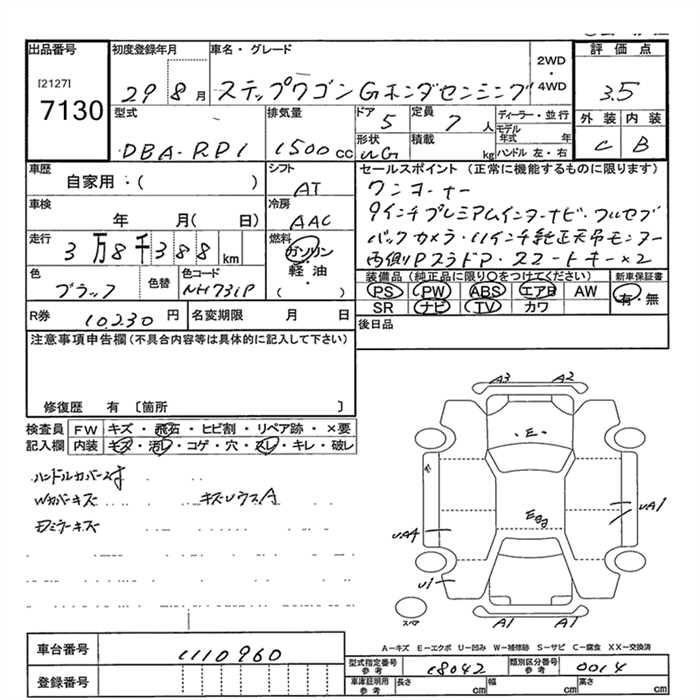 出品番号 初度登録年月 車名・グレード 評価点
[2127] 7130
29 8月 ステップワゴン Gホンダセンシング 2WD・4WD 3.5
型式 排気量 ドア 定員 ディーラー・並行 外装 内装
DBA-RP1 1500cc 5 7人 モデル年式 年 C B
形状 積載 kg ハンドル 左・右
車歴 シフト セールスポイント (正常に機能するものに限ります)
自家用・( ) AT ワンオーナー
車検 冷房 9インチプレミアムインターナビ・フルセグ
年 月( 日) AAC バックカメラ・11インチ純正天吊モニター
走行 燃料 両側Pスラドア・スマートキー×2
3万8千388km ガソリン・軽・油 ( )
色 色替 色コード 装備品 (純正品に限り○をつけてください) 新車保証書
ブラック NH731P PS PW ABS エアB AW 有・無
R券 10230円 名変期限 月 日 SR ナビ TV カワ
注意事項申告欄(不具合内容等は具体的に記入して下さい) 後日品
修復歴 有 〔箇所 〕
検査員記入欄 FW キズ・飛石・ヒビ割・リペア跡・×要
内装 キズ・汚レ・コゲ・穴・スレ・キレ・破レ
Wカバーキズ
A3 A2
E
UA4 UA1
U1
A1 A1
スペア
A-キズ E-エクボ U-凹み W-補修跡 S-サビ C-腐食 XX-交換済
車台番号 1110960
型式指定番号 参考 18042 類別区分番号 参考 0014
登録番号 車庫証明用 参考 長さ cm 幅 cm 高さ cm